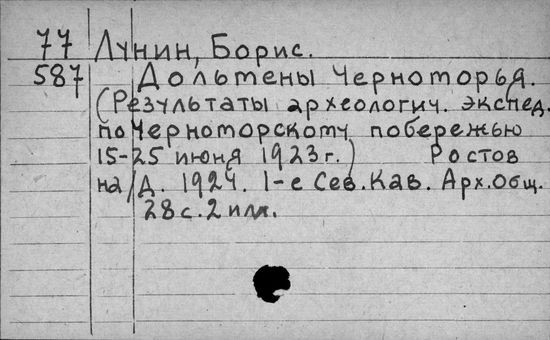 77 Лунин, Борис.
587 Дольмены Черноморья.
(Результаты археологич. экспед.
по Черноморскому побережью
15-25 июня 1923 г.) Ростов
на/Д. 1924. 1-е Сев. Кав. Арх. Общ.
28 с. 2 илл.